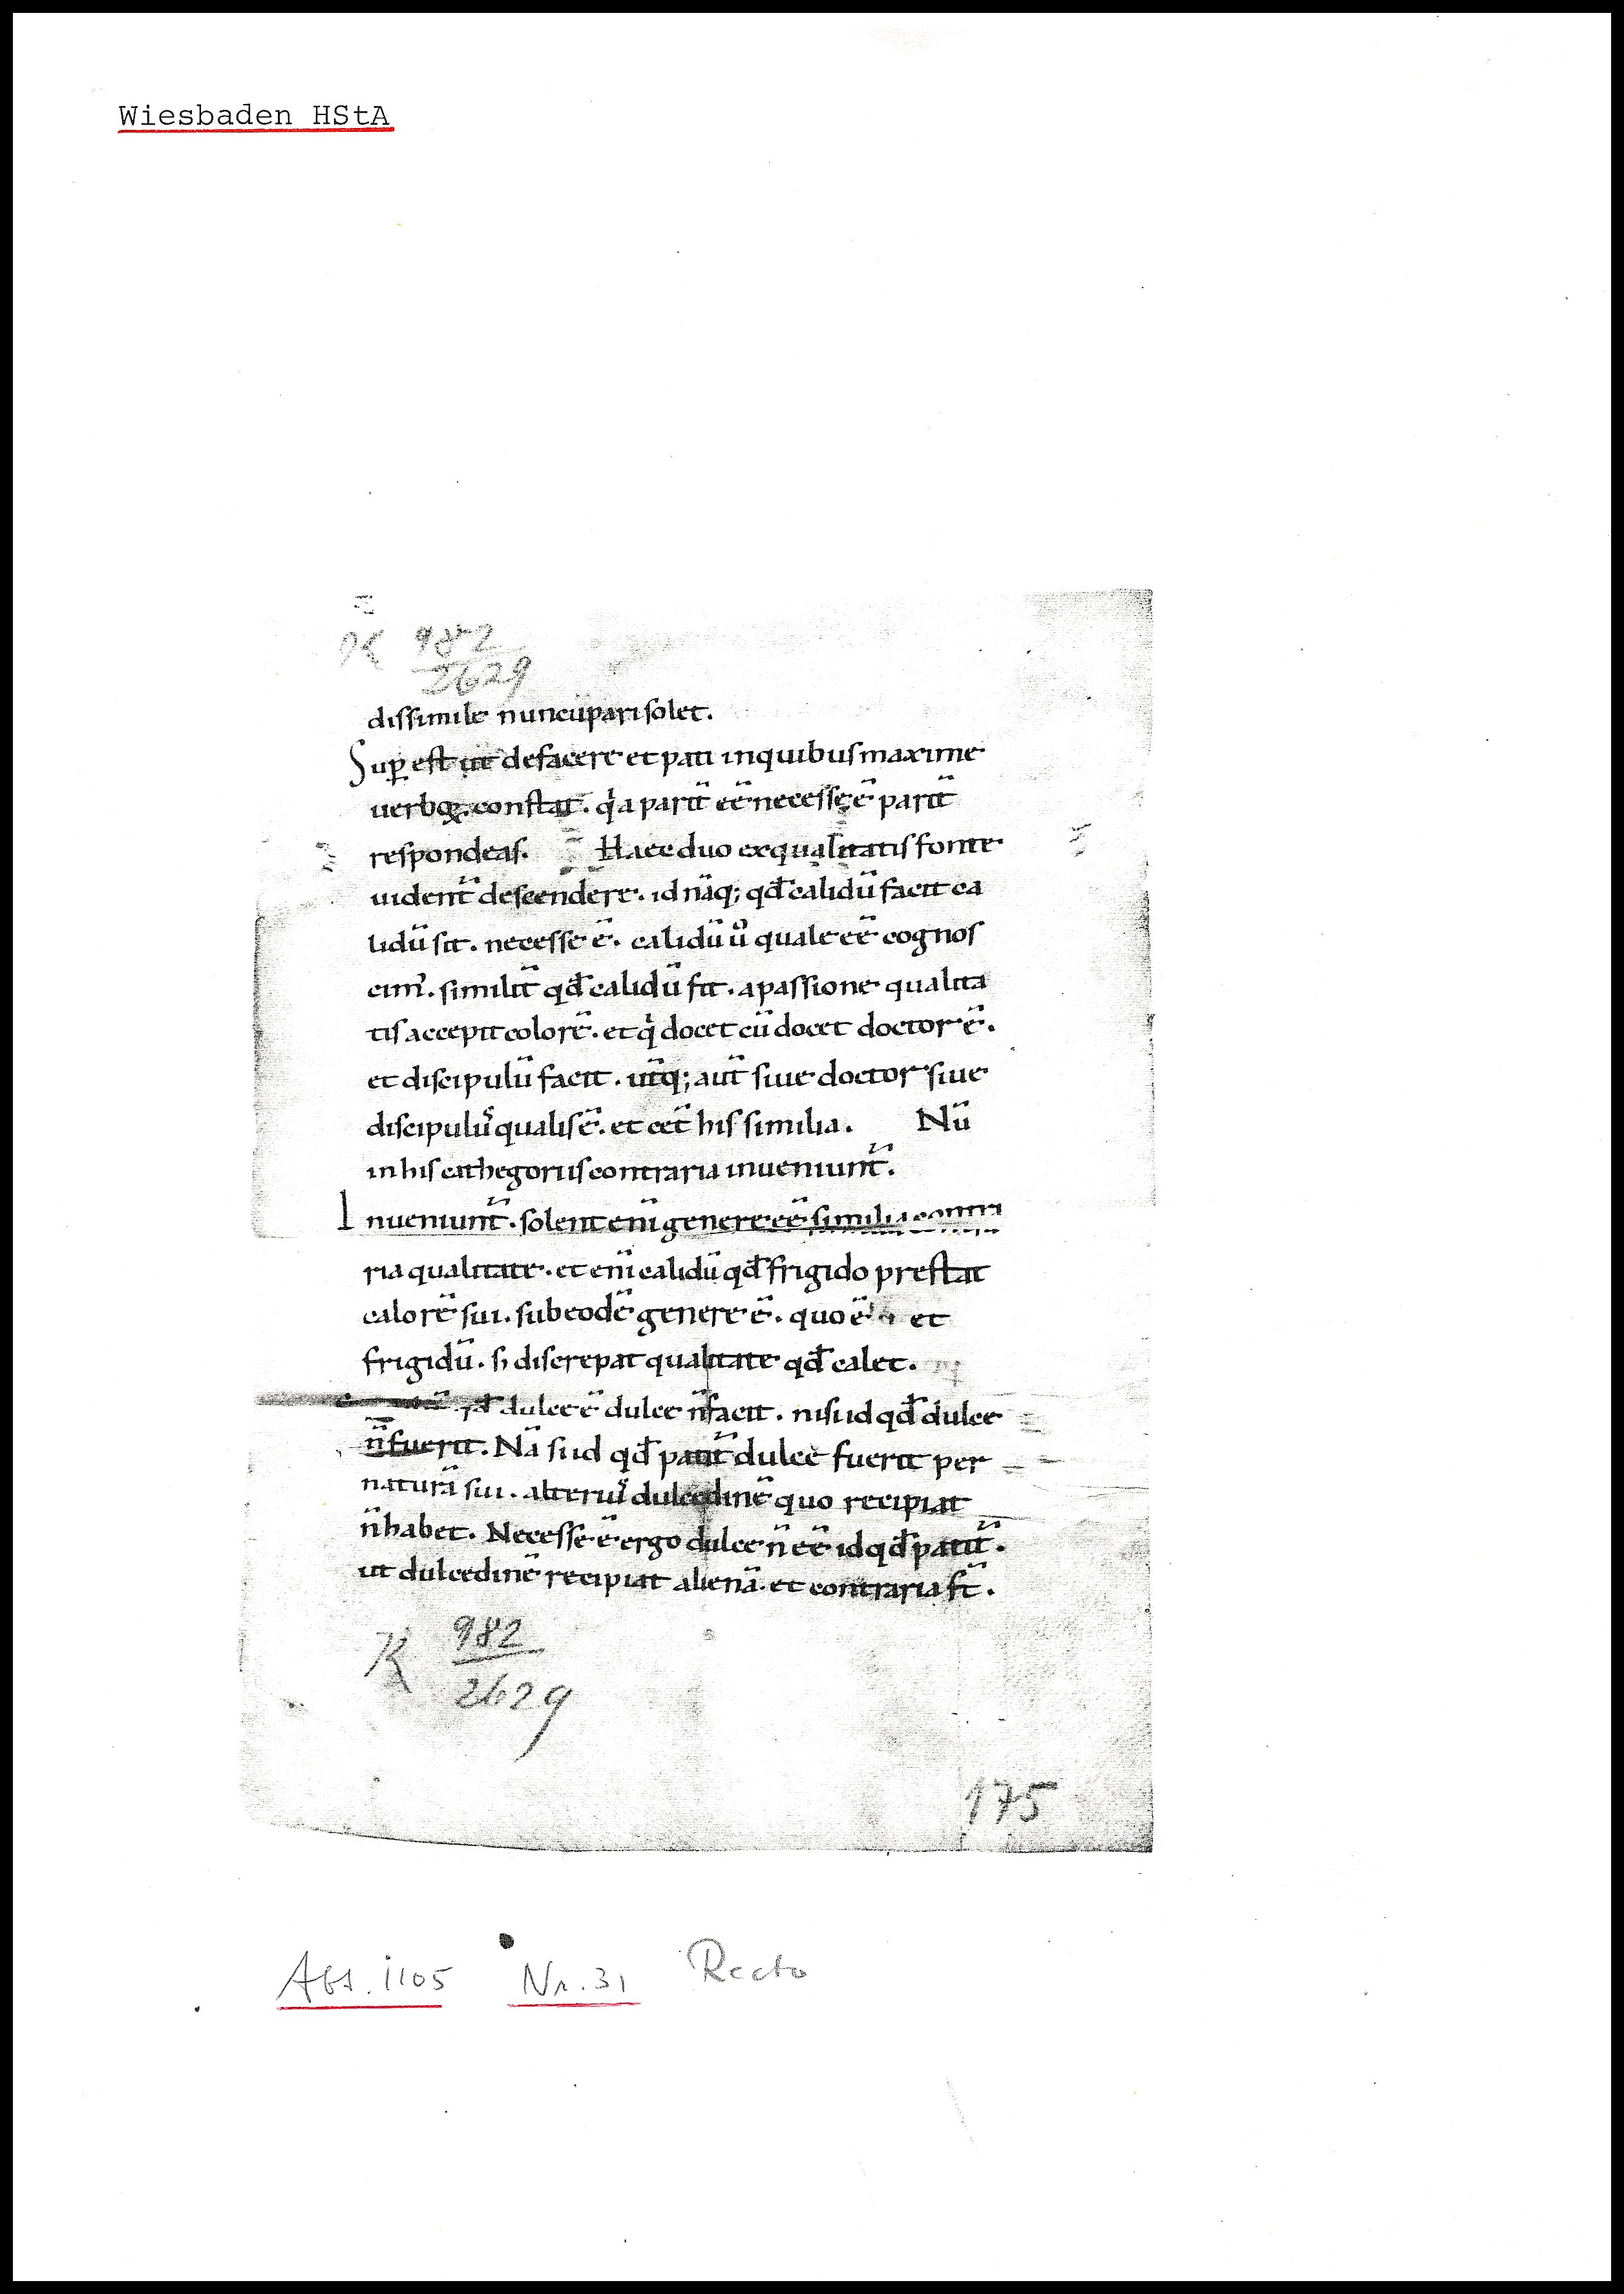 Wiesbaden HStA
K 982
2629
dissimile nuncupari solet.
Sup̱ est ut defacere et pati inquibus maxime
uerboꝝ. constat. qͥa parit̄ eē necesse ē parit̄
respondeas. Haec duo ex qualitatis fonte
uident̄ descendere. id nāq; qđ calidū facit ca
lidū sit. necesse ē. calidū ů quale eē cognos
cim᾽. similit̄ qđ calidū fit. apassione qualita
tis accepit colorē. et qͥ docet cū docet doctor ē.
et discipulū facit. utq̄; aut̄ siue doctor siue
discipulus qualis ē. et cet̄ his similia. Nū
in his cathegoriis contraria inueniunt̄.
Inueniunt̄. solent enī genere eē similia contra
ria qualitate. et enī calidū qđ frigido prestat
calorē sui. sub eodē genere ē. quo ē et
frigidū. s; discrepat qualitate qđ calet.
qđ dulce ē dulce n̄ facit. nisi id qđ dulce
n̄ fuerit. Nā si id qđ patit̄ dulce fuerit per
naturā sui. alterius dulcedinē quo recipiat
n̄ habet. Necesse ē ergo dulce n̄ eē id qđ patit̄.
ut dulcedinē recipiat alienā. et contraria st̄.
K 982
2629
175
Abt. 1105 Nr. 31 Recto